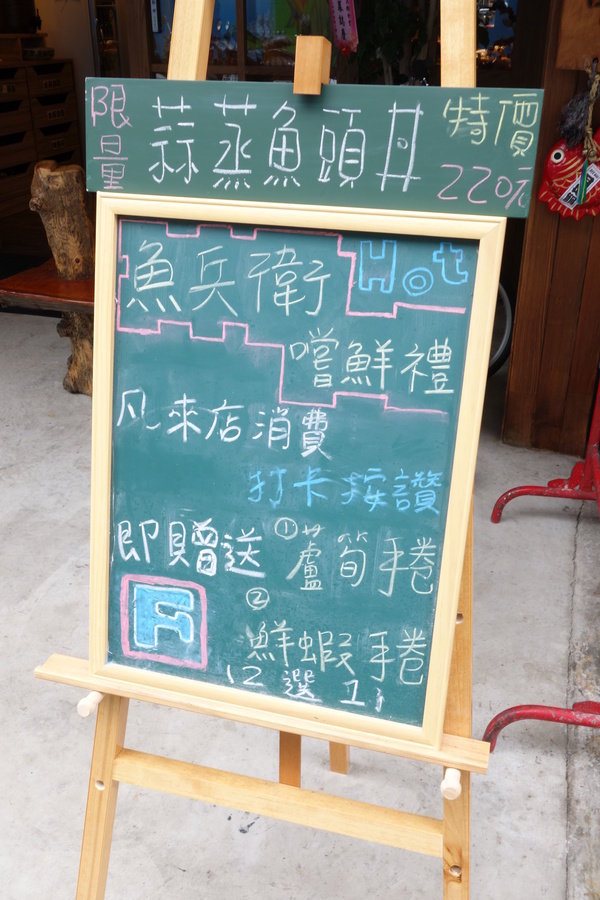 限量 蒜蒸魚頭丼 特價 220元
漁兵衛 Hot
嚐鮮禮
凡來店消費
打卡按讚
即贈送 ①蘆筍手捲
②鮮蝦手捲
F
(2選1)